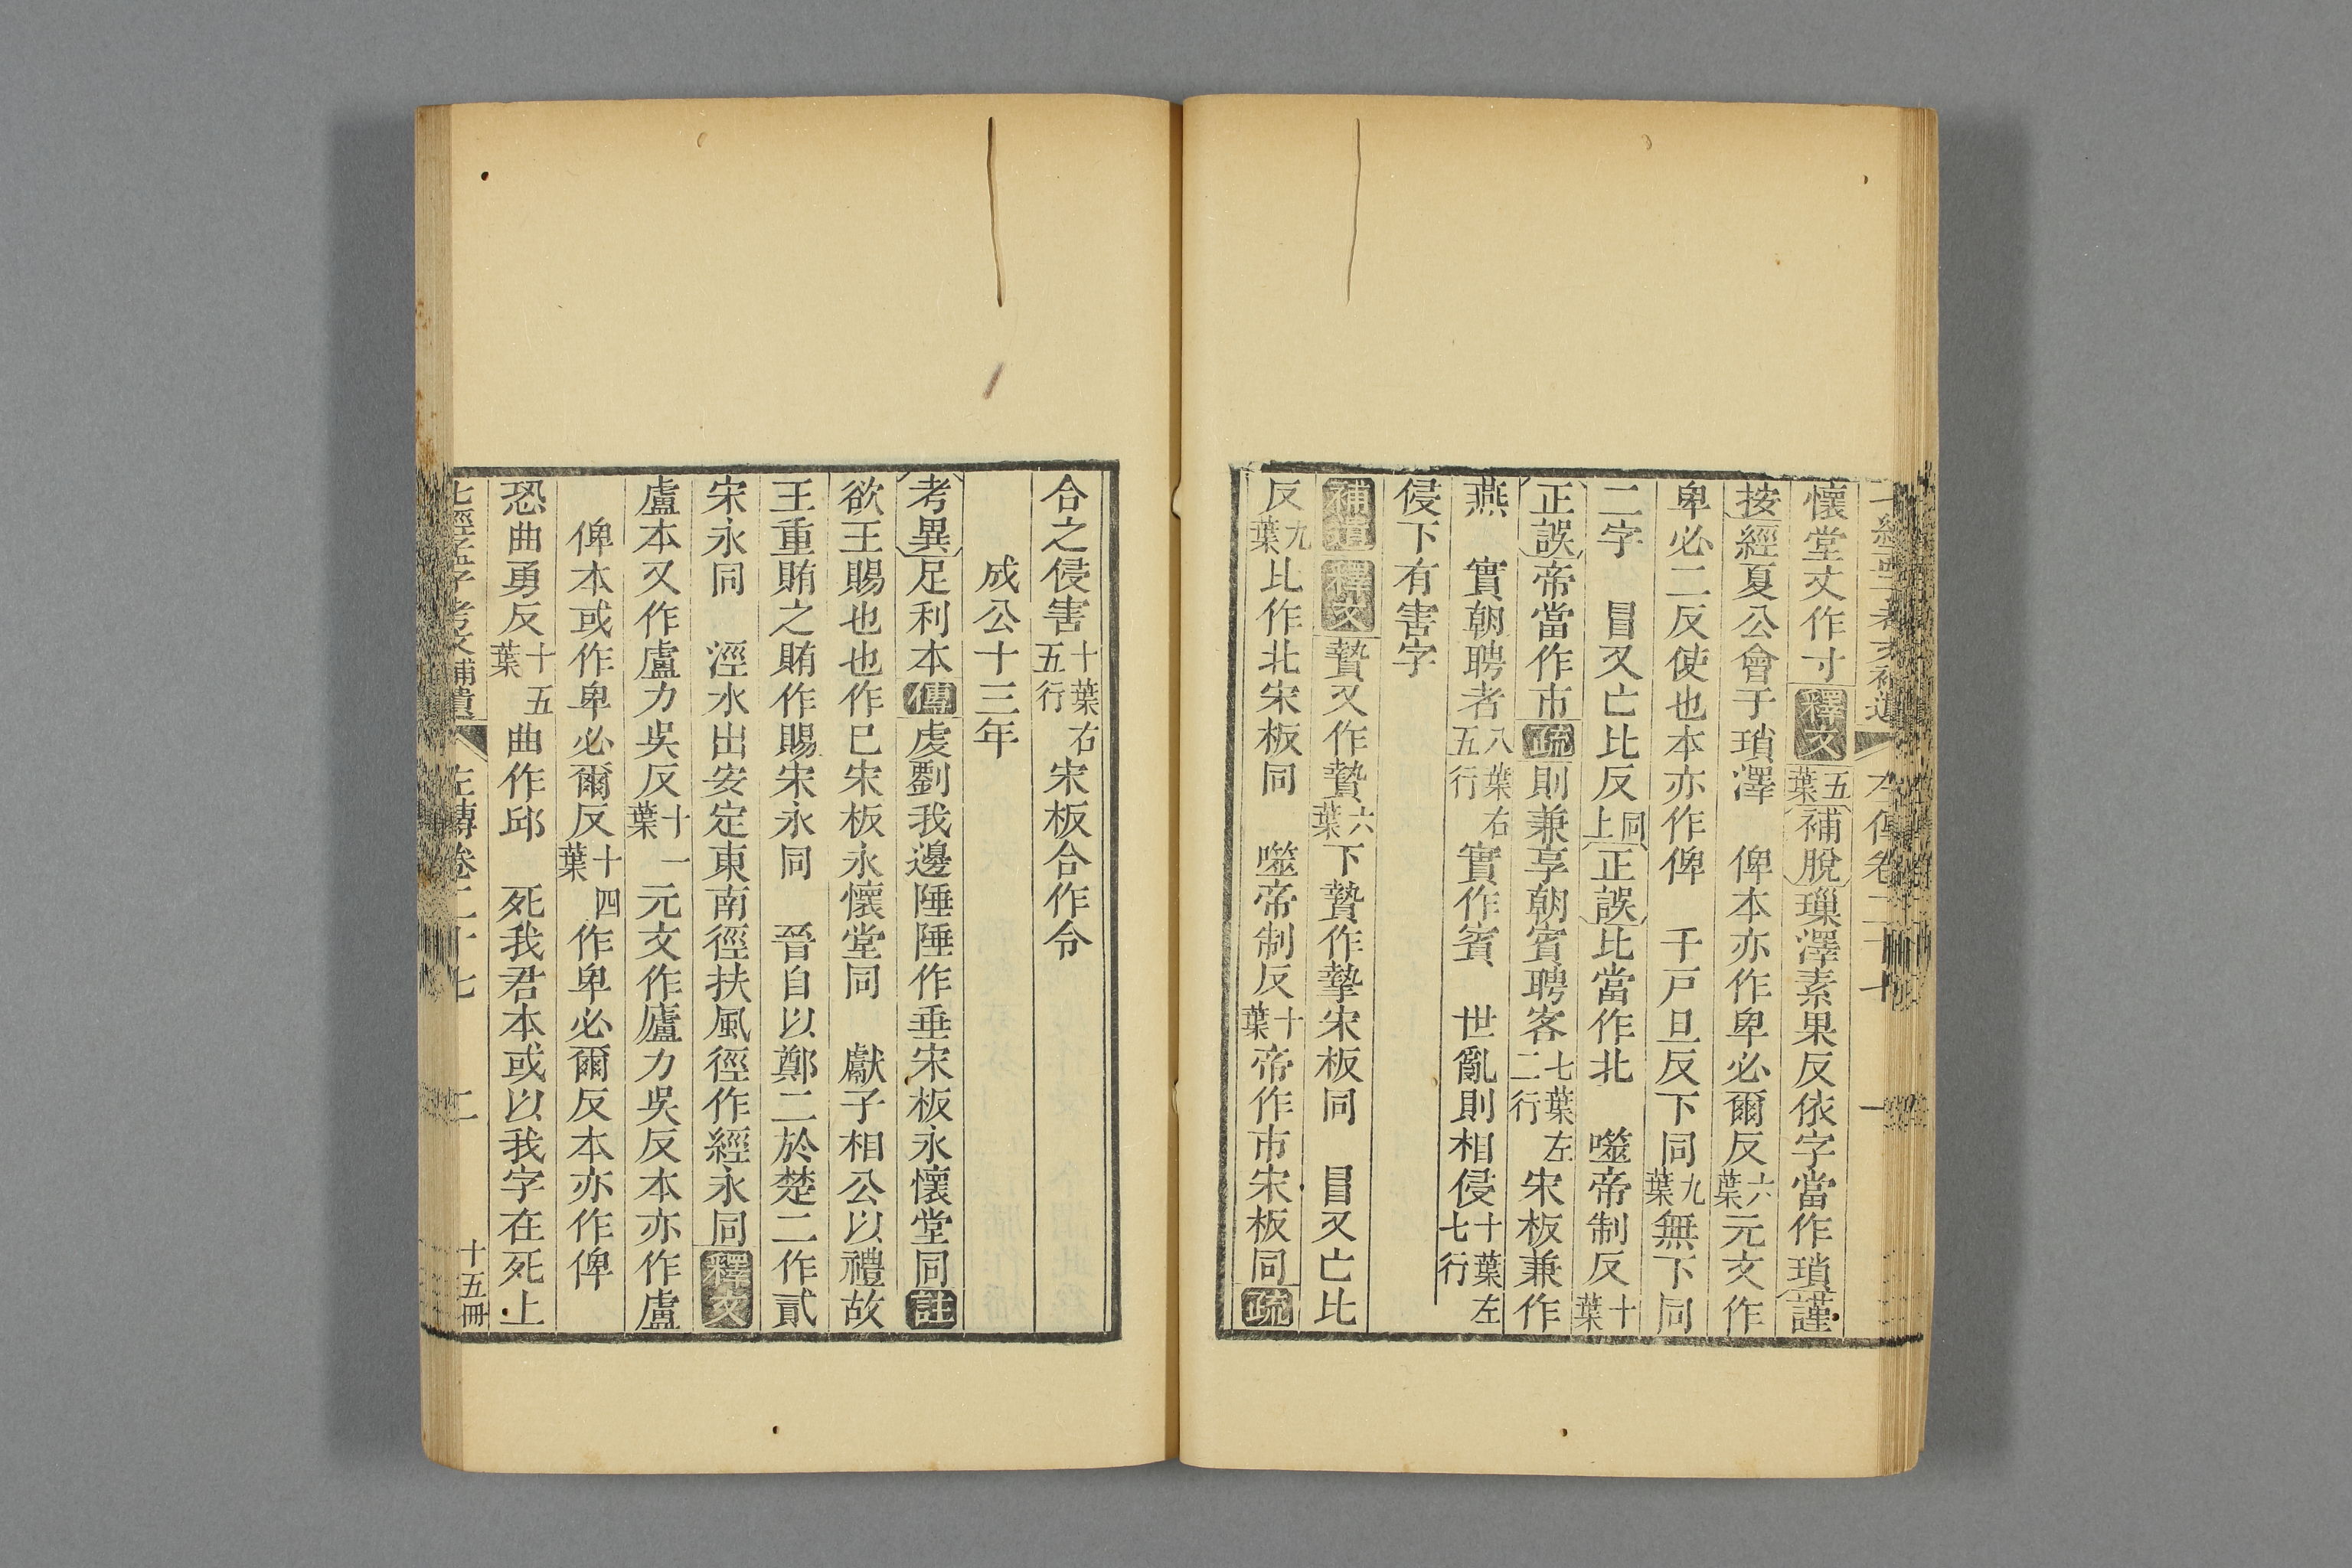 七經孟子考文補遺 左傳卷二十七 一
懷堂丈作寸釋文五葉補脫璅澤素果反依字當作瑣謹
按經夏公會于瑣澤 俾本亦作卑必爾反六葉元文作
卑必二反使也本亦作俾 千戸旦反下同九葉無下同
二字 冒又亡比反同上正誤比當作北 噬帝制反十葉
正誤帝當作市疏則兼享朝賓聘客七葉左二行宋板兼作
燕 實朝聘者八葉右五行實作賓 世亂則相侵十葉左七行
侵下有害字
補遺釋文贄又作贄六葉下贄作摯宋板同 冒又亡比
反九葉比作北宋板同 噬帝制反十葉帝作市宋板同疏
合之侵害十葉右五行宋板合作令
成公十三年
考異足利本傳虔劉我邊陲陲作垂宋板永懷堂同註
欲王賜也也作已宋板永懷堂同 獻子相公以禮故
王重賄之賄作賜宋永同 晉自以鄭二於楚二作貳
宋永同 涇水出安定東南徑扶風徑作經永同釋文
盧本又作盧力吳反十一葉元文作廬力吳反本亦作盧
俾本或作卑必爾反十四葉作卑必爾反本亦作俾
恐曲勇反十五葉曲作邱 死我君本或以我字在死上
七經孟子考文補遺 左傳卷二十七 二 十五冊